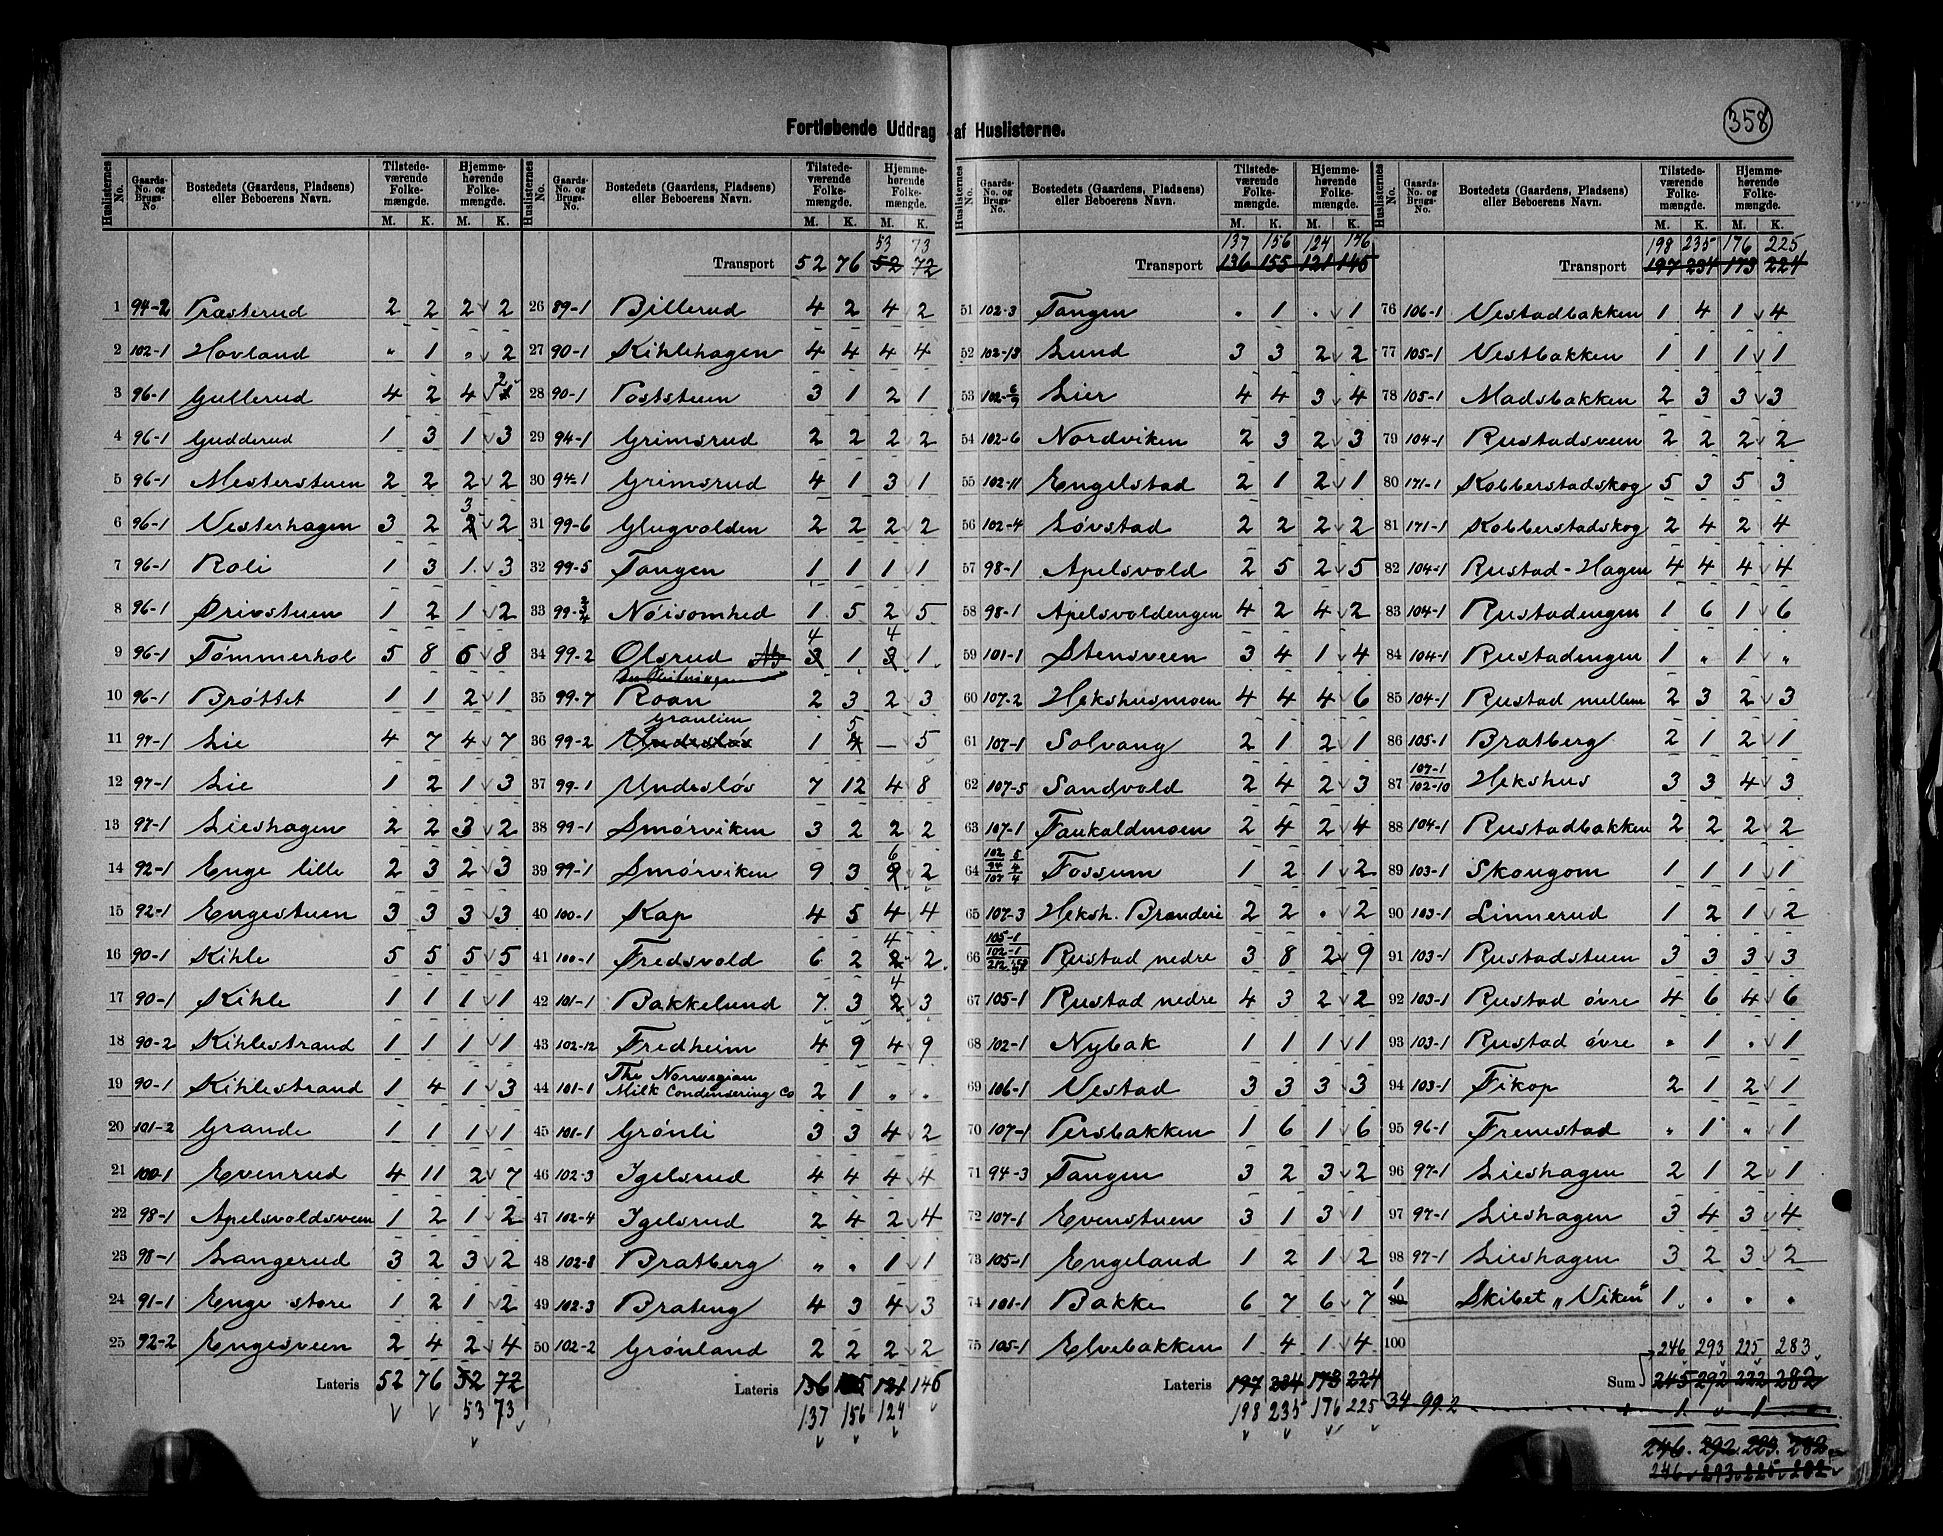 358
Fortløbende Uddrag af Huslisterne.
Huslisternes No. | Gaards-No. og Brugs-No. | Bostedets (Gaardens, Pladsens) eller Beboerens Navn. | Tilstedeværende Folkemængde. M. K. | Hjemmehørende Folkemængde. M. K.
1 94-2 Præsterud 2 2 2 2
2 102-1 Hovland " 1 " 2
3 96-1 Gullerud 4 2 4 2
4 96-1 Gudderud 1 3 1 3
5 96-1 Mesterstuen 2 2 2 2
6 96-1 Vesterhagen 3 2 3 2
7 96-1 Roli 1 3 1 3
8 96-1 Drivstuen 1 2 1 2
9 96-1 Tømmerhol 5 8 6 8
10 96-1 Brøttet 1 1 2 1
11 97-1 Lie 4 7 4 7
12 97-1 Lie 1 2 1 3
13 97-1 Lieshagen 2 2 3 2
14 92-1 Enge lille 2 3 2 3
15 92-1 Engestuen 3 3 3 3
16 90-1 Kihle 5 5 5 5
17 90-1 Kihle 1 1 1 1
18 90-2 Kihlestrand 1 1 1 1
19 90-1 Kihlestrand 1 4 1 3
20 101-2 Grande 1 1 1 1
21 100-1 Evenrud 4 11 2 7
22 98-1 Apelsvoldsveen 1 2 1 2
23 98-1 Langerud 3 2 3 2
24 91-1 Enge store 1 2 1 2
25 92-2 Engesveen 2 4 2 4
Lateris 52 76 52 72
53 73
53 73
Transport 52 76 52 72
26 89-1 Billerud 4 2 4 2
27 90-1 Kihlehagen 4 4 4 4
28 90-1 Poststuen 3 1 2 1
29 94-1 Grimsrud 2 2 2 2
30 94-1 Grimsrud 4 1 3 1
31 99-6 Glugvolden 2 2 2 2
32 99-5 Tangen 1 1 1 1
33 99-3/4 Nøisomhed 1 5 2 5
4 4
34 99-2 Olsrud 3 1 3 1
35 99-7 Roan 2 3 2 3
Granlien 5
36 99-2 Undesløs 1 4 — 5
37 99-1 Undesløs 7 12 4 8
38 99-1 Smørviken 3 2 2 2
39 99-1 Smørviken 9 3 6 2
40 100-1 Kap 4 5 4 4
41 100-1 Fredsvold 6 2 4 2
42 101-1 Bakkelund 7 3 4 3
43 102-12 Fredheim 4 9 4 9
44 101-1 The Norwegian Milk Condensering Co 2 1 " "
45 101-1 Grønli 3 3 4 2
46 102-3 Igelsrud 4 4 4 4
47 102-4 Igelsrud 2 4 2 4
48 102-8 Bratberg " " 1 1
49 102-3 Brateng 4 3 4 3
50 102-2 Grønland 2 2 2 2
Lateris 136 155 121 146
137 156 124
137 156 124 146
Transport 136 155 121 145
51 102-3 Tangen . 1 . 1
52 102-13 Lund 3 3 2 2
53 102-6/9 Lier 4 4 3 4
54 102-6 Nordviken 2 3 2 3
55 102-11 Engelstad 2 1 2 1
56 102-4 Løvstad 2 2 2 2
57 98-1 Apelsvold 2 5 2 5
58 98-1 Apelsvoldengen 4 2 4 2
59 101-1 Stensveen 3 4 1 4
60 107-2 Hekshusmoen 4 4 4 6
61 107-1 Solvang 2 1 2 1
62 107-5 Sandvold 2 4 2 3
63 107-1 Faukaldmoen 2 4 2 4
64 102 5 94 4 107 4 Fossum 1 2 1 2
65 107-3 Heksh. Brænderi 2 2 . 2
66 105-1 102-1 Rustad nedre 3 8 2 9
67 105-1 Rustad nedre 4 3 2 2
68 102-1 Nybak 1 1 1 1
69 106-1 Vestad 3 3 3 3
70 107-1 Persbakken 1 6 1 6
71 94-3 Tangen 3 2 3 2
72 107-1 Evenstuen 3 1 3 1
73 105-1 Engeland 1 2 1 2
74 101-1 Bakke 6 7 6 7
75 105-1 Elvebakken 1 4 1 4
Lateris 197 234 173 224
198 235 176 225
198 235 176 225
Transport 197 234 173 224
76 106-1 Vestadbakken 1 4 1 4
77 105-1 Vestbakken 1 1 1 1
78 105-1 Madsbakken 2 3 3 3
79 104-1 Rustadsveen 2 2 2 2
80 171-1 Kobberstadskog 5 3 5 3
81 171-1 Kobberstadskog 2 4 2 4
82 104-1 Rustad-Hagen 4 4 4 4
83 104-1 Rustadengen 1 6 1 6
84 104-1 Rustadengen 1 " 1 "
85 104-1 Rustad mellem 2 3 2 3
86 105-1 Bratberg 2 1 2 1
87 107-1 102-10 Hekshus 3 3 4 3
88 104-1 Rustadbakken 2 2 2 2
89 103-1 Skougom 1 1 1 1
90 103-1 Linnerud 1 2 1 2
91 103-1 Rustadstuen 3 3 3 3
92 103-1 Rustad øvre 4 6 4 6
93 103-1 Rustad øvre " 1 " 1
94 103-1 Fikop 2 1 2 1
95 96-1 Fremstad " 1 " 1
96 97-1 Lieshagen 2 1 2 1
97 97-1 Lieshagen 3 4 3 4
98 97-1 Lieshagen 3 2 3 2
1 99 Skibet „Viken" 1 . . .
100 246 293 225 283
Sum 245 292 222 282
34 99.2 1 " 1 "
246 292 223 282
246 293 225 282